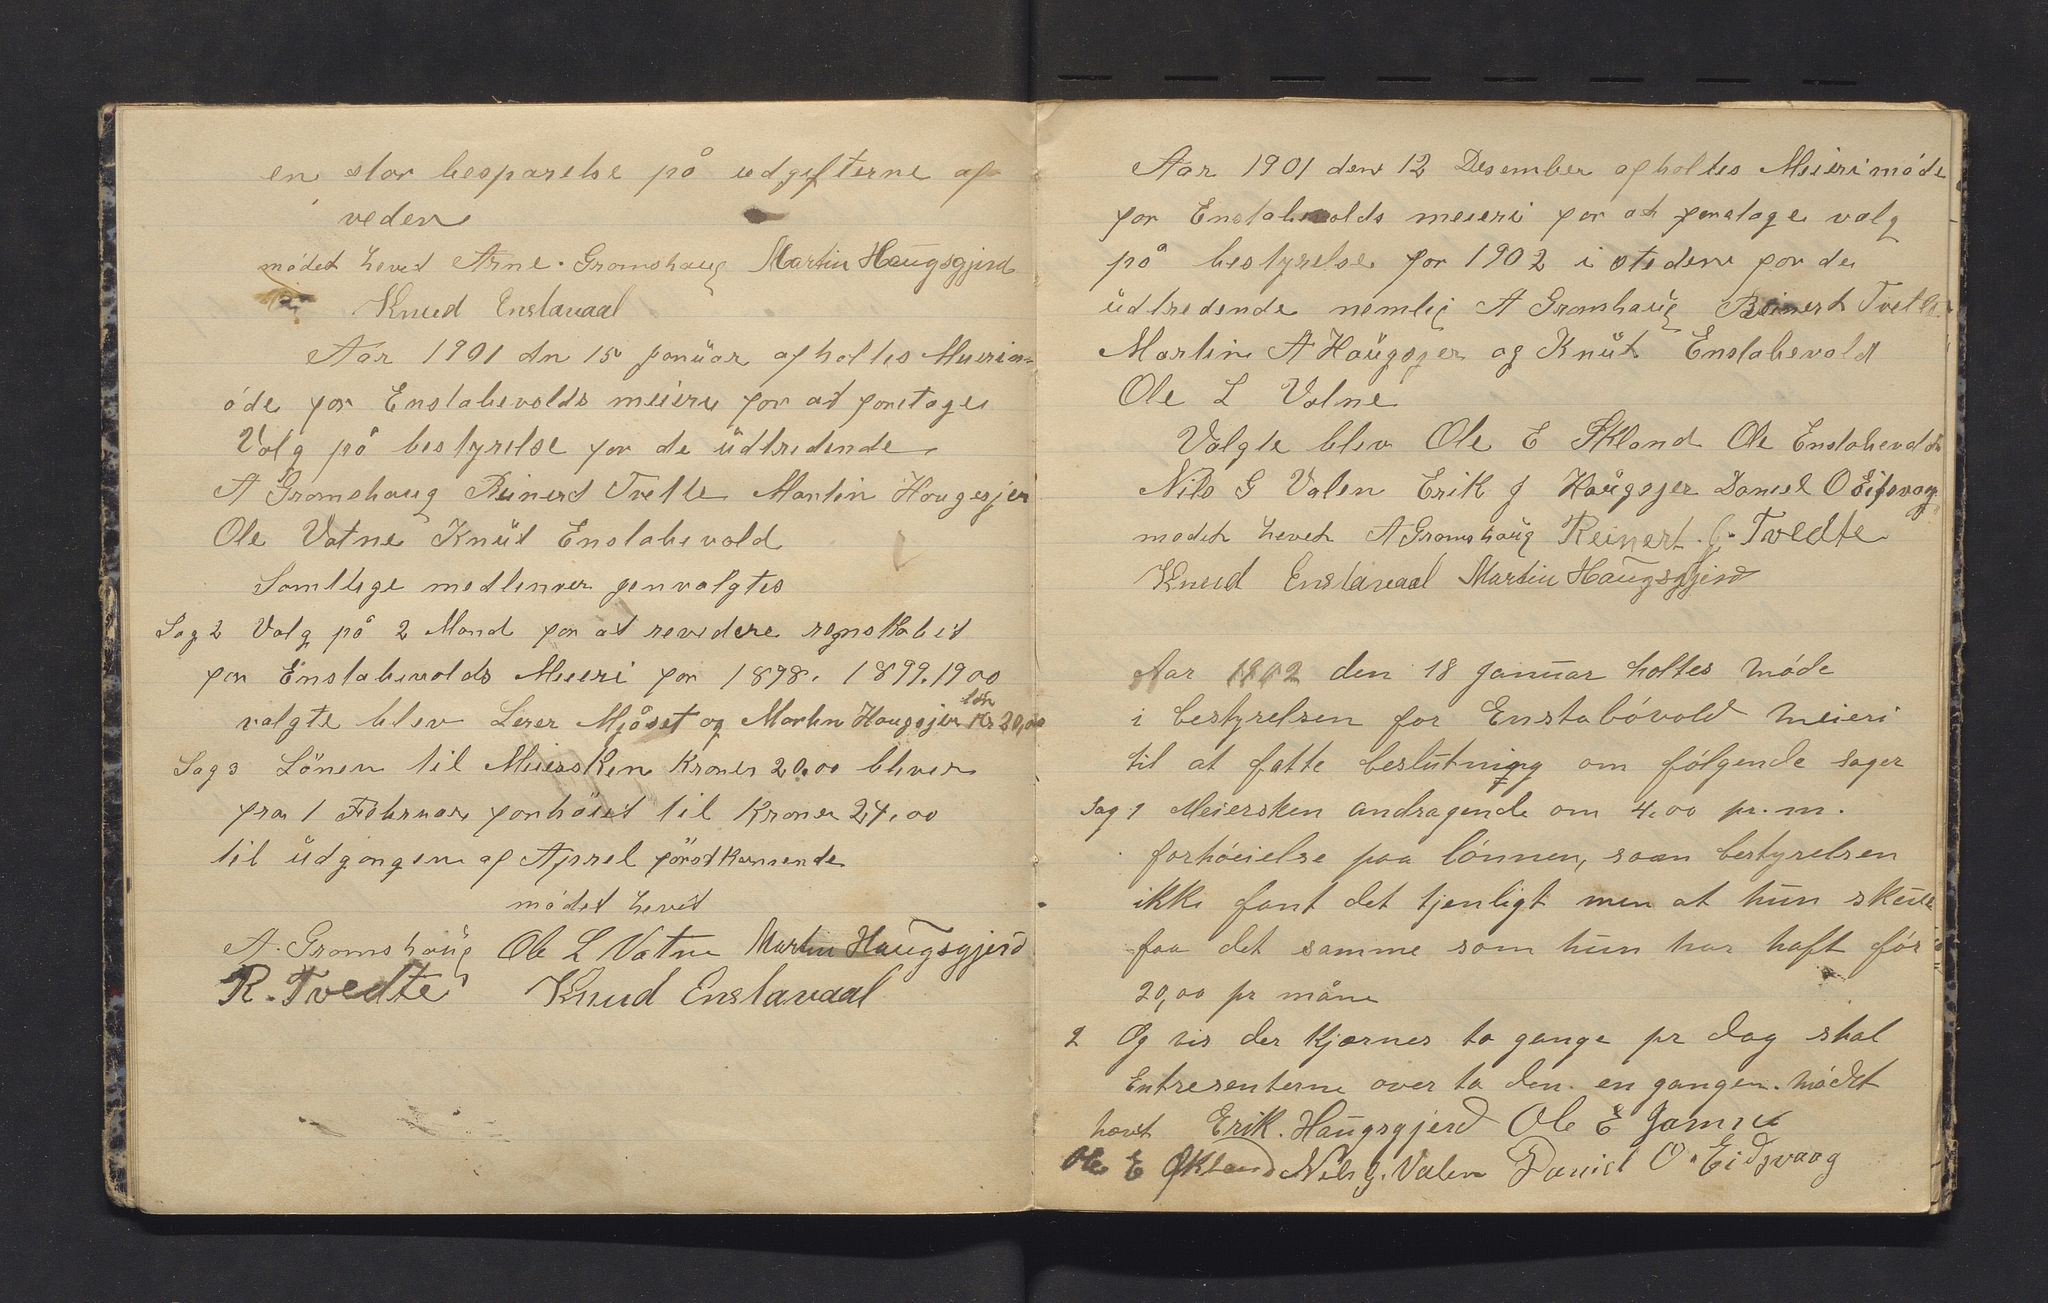 en stor besparelse på udgifterne af
veden
mödet hevet Arne Gromshaug Martin Haugsgjerd
Knud Enstavaal
Aar 1901 dn 15 januar afholtes Meierim-
öde for Enstabevolds meieri for at foretage
Valg på bestyrelse for de udtredende
A Gromshaug Reinert Tvette Martin Hougsjer
Ole Vatne Knut Enstabevold
Samtlige medlemer gjenvalgtes
Sag 2 Valg på 2 Mand for at revidere regnskabet
for Enstabevolds Meieri for 1898. 1899. 1900
valgte blev Lerer Mjåset og Martin Haugsjer lön Kr 20,00
Sag 3 Lönen til Meiersken Kroner 20.00 bliver
fra 1 Februar forhöiet til Kroner 24.00
til udgangen af Aprel förstkomende
mödet hevet
A. Gromshaug Ole L Vatne Martin Haugsgjerd
R. Tvedte Knud Enstavaal
Aar 1901 den 12 Desember afholtes Meierimöde
for Enstabevolds meieri for at foretage valg
på bestyrelse for 1902 i steden for de
udtredende nemlig A Gromhaug Reinert Tvette
Martin A Haugsjer og Knut Enstabevold
Ole L Vatne
Valgte blev Ole E Økland Ole Enstabevold
Nils G Valen Erik J Haugsjer Daniel O Eidsvag
mödet hevet A Gromshaug Reinert J. Tvedte
Knud Enstavaal Martin Haugsgjerd
Aar 1902 den 18 Januar holtes Möde
i bestyrelsen for Enstabóvold Meieri
til at fatte beslutning om fólgende sager
Sag 1 Meiersken andragende om 4.00 pr. m.
forhóielse paa lónnen, saan bestyrelsen
ikke fant det tjenligt men at hun skulle
faa det samme som hun har haft fór
20,00 pr måne
2 Og vis der Kjærnes to gange pr dag skal
Entresenterne over ta den en gangen. Módet
hævt Erik. Haugsgjerd Ole E Jamne
Ole E Økland Nils G. Valen Daniel O. Eidsvaag